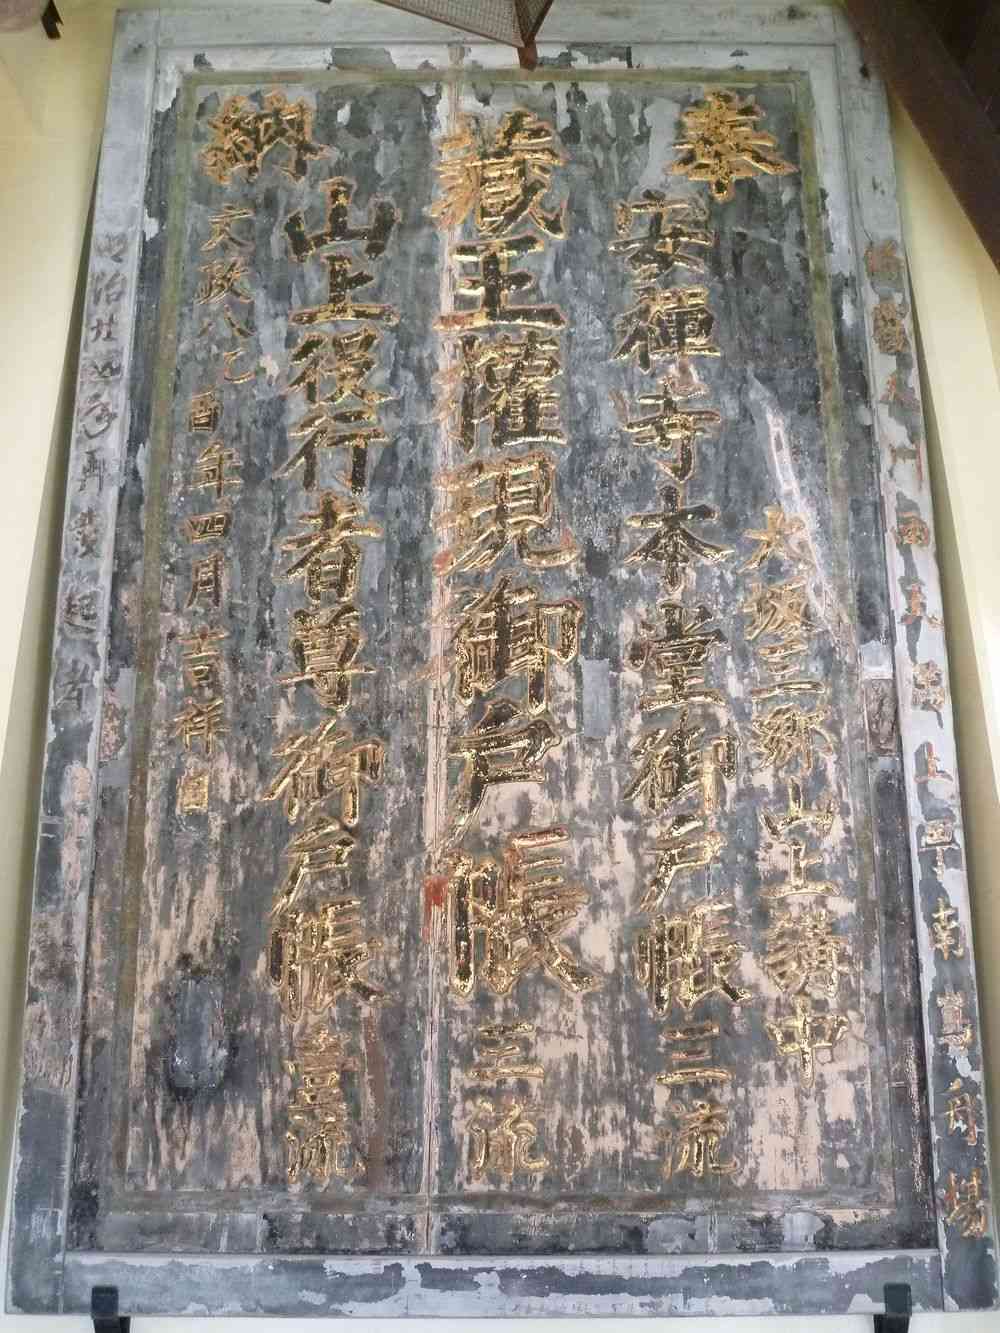 奉
納
大坂三郷山上講中
安禅寺本堂御戸帳三流
藏王權現御戸帳三流
山上役行者尊御戸帳壹流
文政八乙酉年四月吉祥日
明治廿四年再發起者